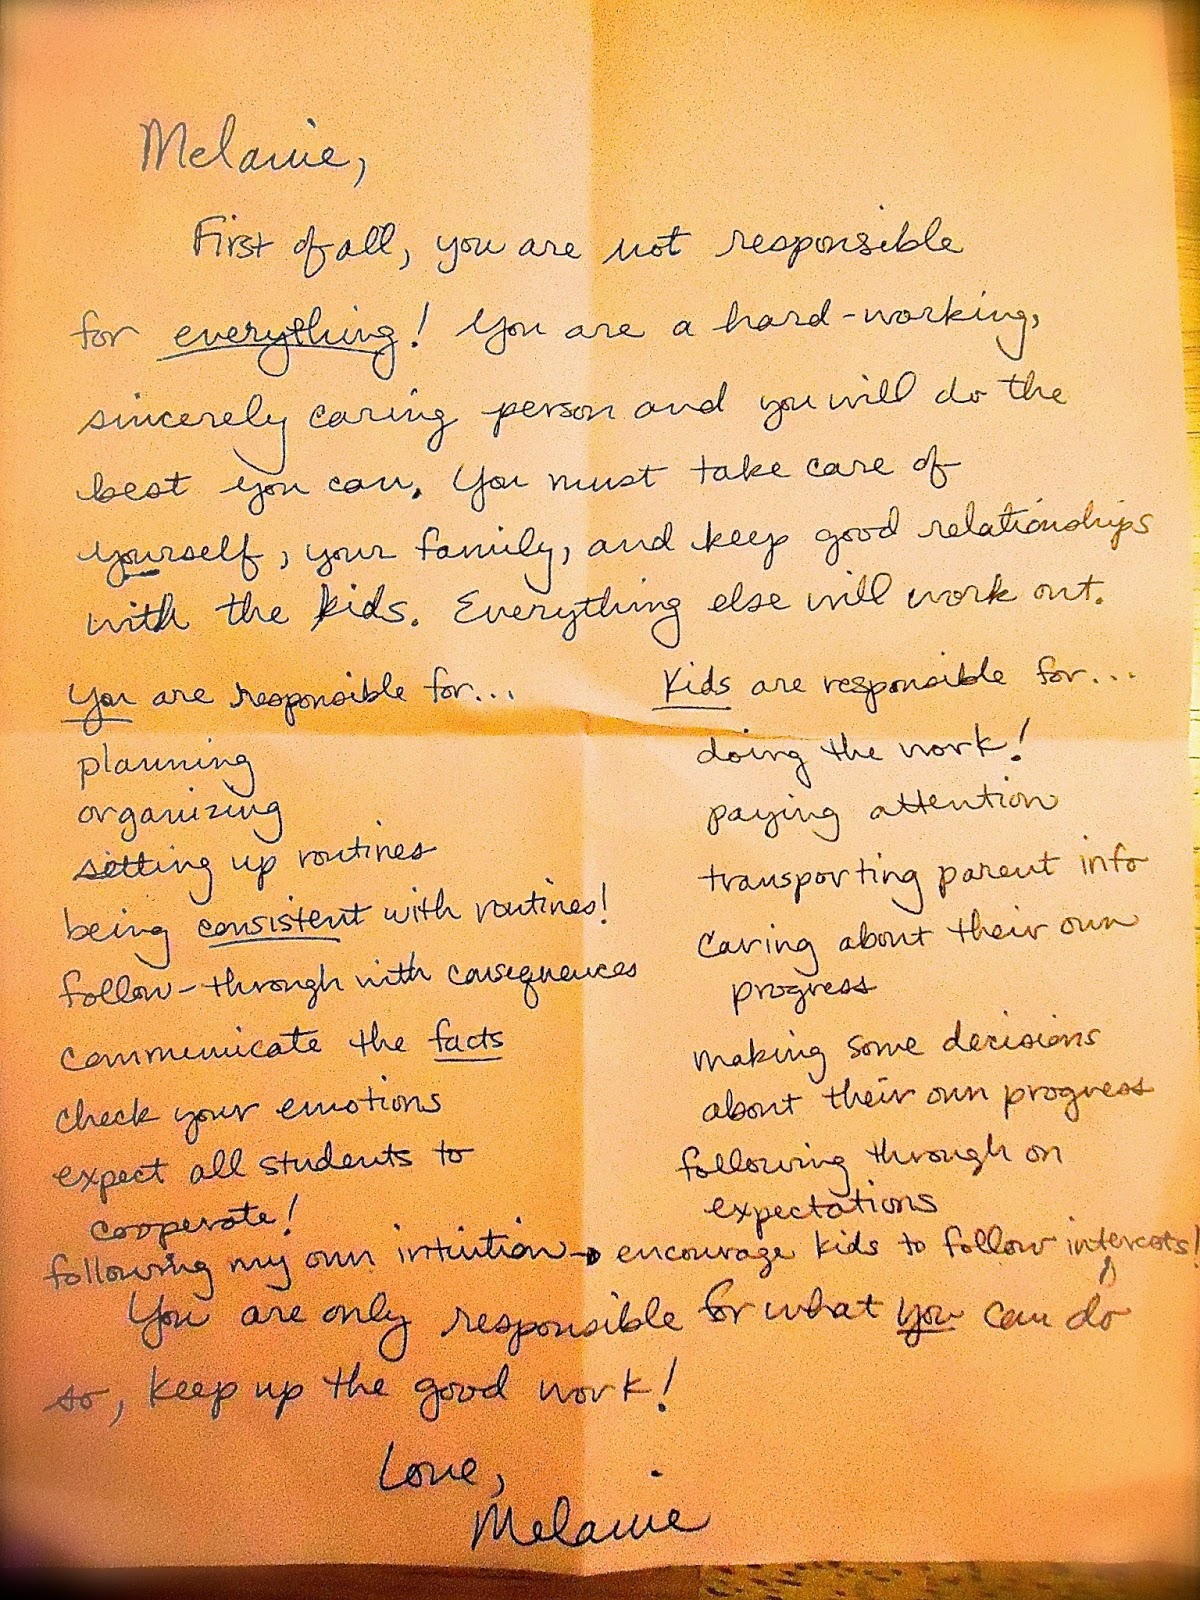 Melanie,
First of all, you are not responsible
for everything! You are a hard-working,
sincerely caring person and you will do the
best you can. You must take care of
yourself, your family, and keep good relationships
with the kids. Everything else will work out.
You are responsible for...
planning
organizing
setting up routines
being consistent with routines!
follow-through with consequences
communicate the facts
check your emotions
expect all students to
cooperate!
Kids are responsible for...
doing the work!
paying attention
transporting parent info
caring about their own
progress
making some decisions
about their own progress
following through on
expectations
following my own intuition → encourage kids to follow interests!
You are only responsible for what you can do
so, keep up the good work!
Love,
Melanie